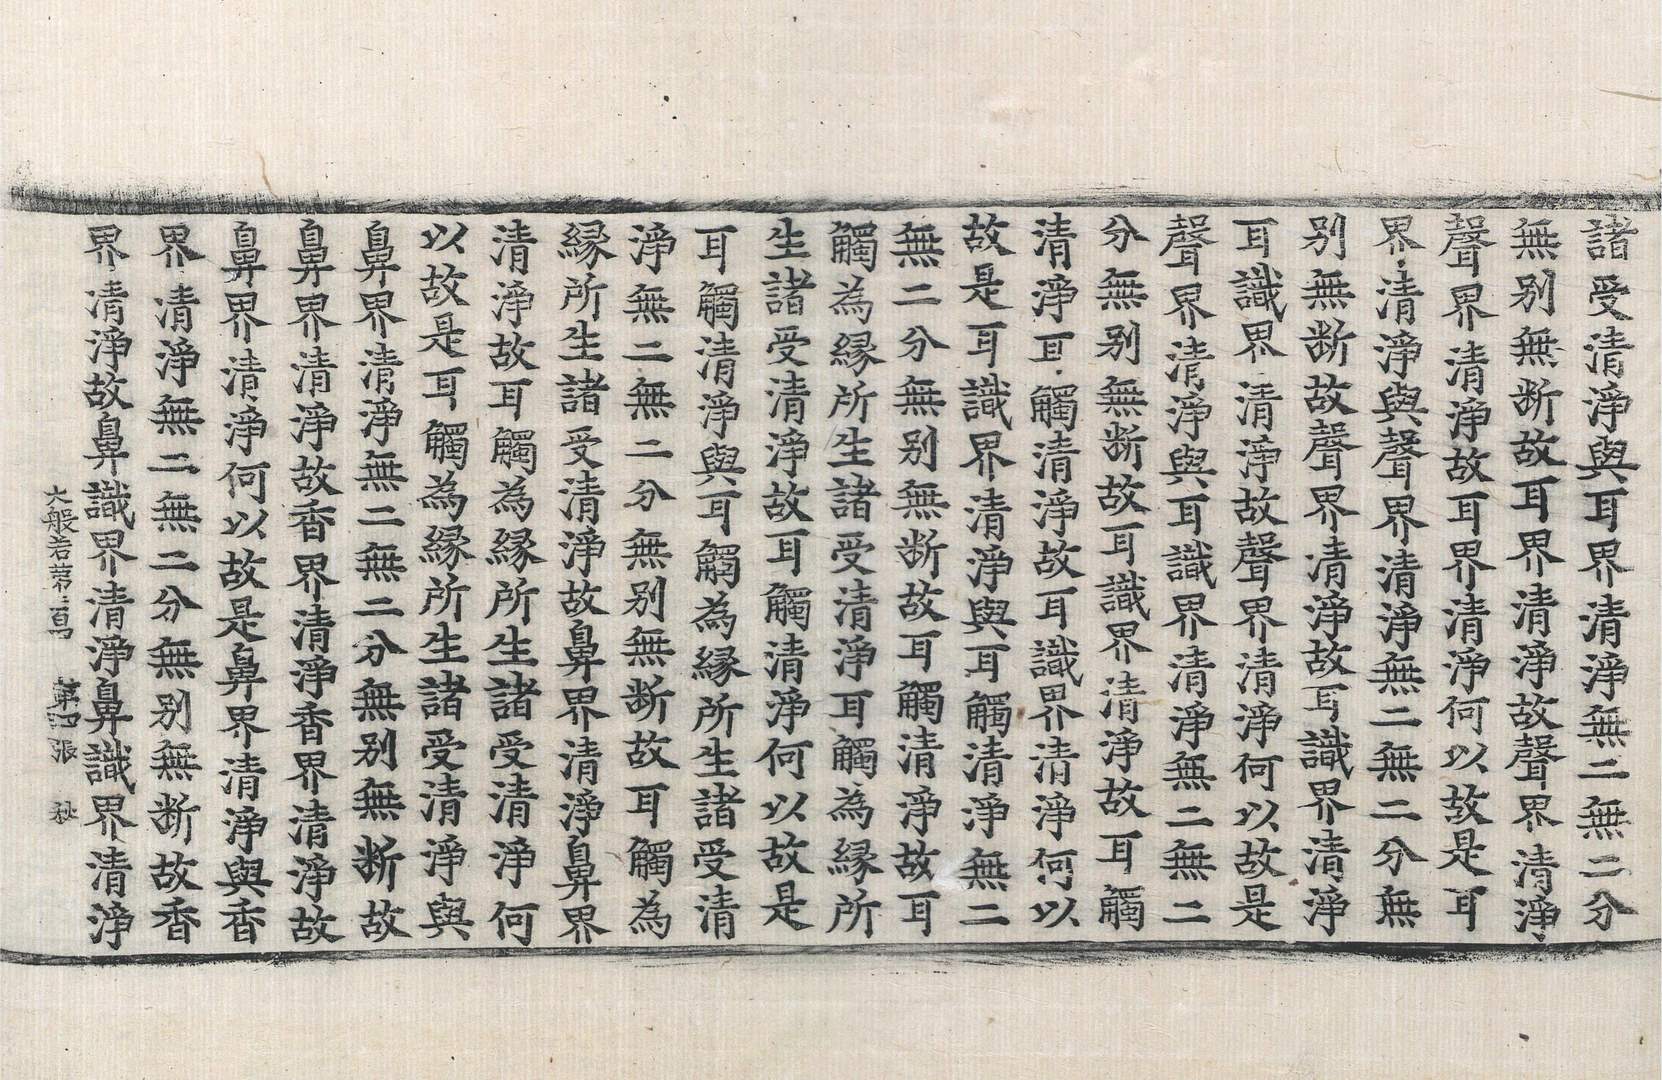 諸受清淨與耳界清淨無二無二分
無别無断故耳界清淨故聲界清淨
聲界清淨故耳界清淨何以故是耳
界清淨與聲界清淨無二無二分無
别無断故聲界清淨故耳識界清淨
耳識界清淨故聲界清淨何以故是
聲界清淨與耳識界清淨無二無二
分無别無断故耳識界清淨故耳觸
清淨耳觸清淨故耳識界清淨何以
故是耳識界清淨與耳觸清淨無二
無二分無别無断故耳觸清淨故耳
觸為縁所生諸受清淨耳觸為縁所
生諸受清淨故耳觸清淨何以故是
耳觸清淨與耳觸為縁所生諸受清
淨無二無二分無别無断故耳觸為
縁所生諸受清淨故鼻界清淨鼻界
清淨故耳觸為縁所生諸受清淨何
以故是耳觸為縁所生諸受清淨與
鼻界清淨無二無二分無别無断故
鼻界清淨故香界清淨香界清淨故
鼻界清淨何以故是鼻界清淨與香
界清淨無二無二分無别無断故香
界清淨故鼻識界清淨鼻識界清淨
大般若第 第四張